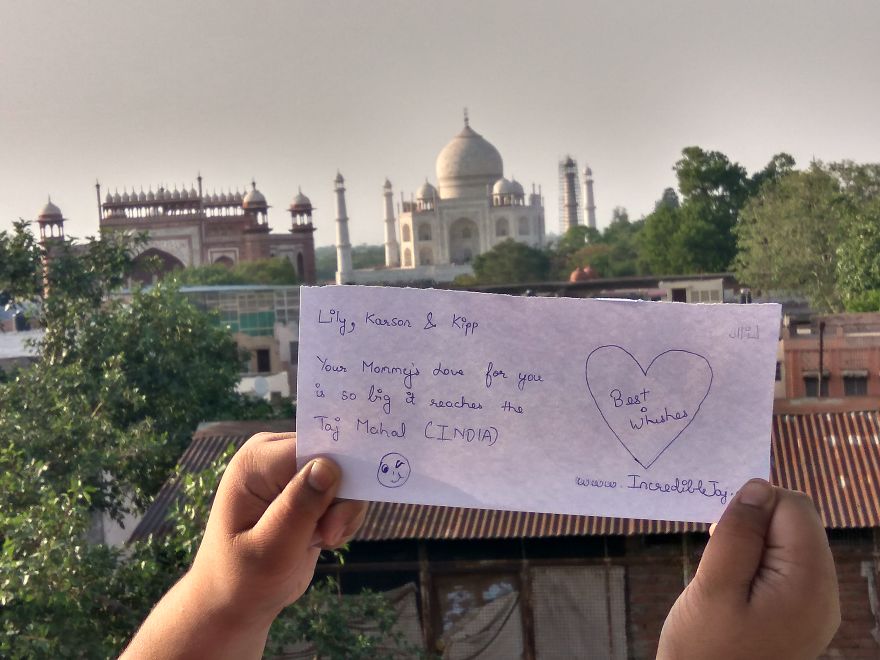 Lily, Karson & Kipp
Your Mommy's Love for you
is so big it reaches the
Taj Mahal (INDIA)
Best
Whishes
www.IncredibleJoy.